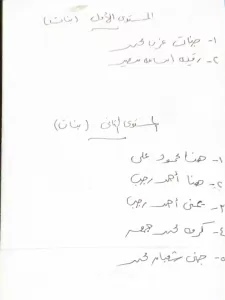 المستوى الأول (بنات)
١- جنات عزب محمد
٢- رقيه أسامه معمر
المستوى الثانى (بنات)
١- هنا محمود على
٢- هنا أحمد رجب
٣- يمنى أحمد رجب
٤- كرمه محمد جمعه
٥- جنى شعبان محمد